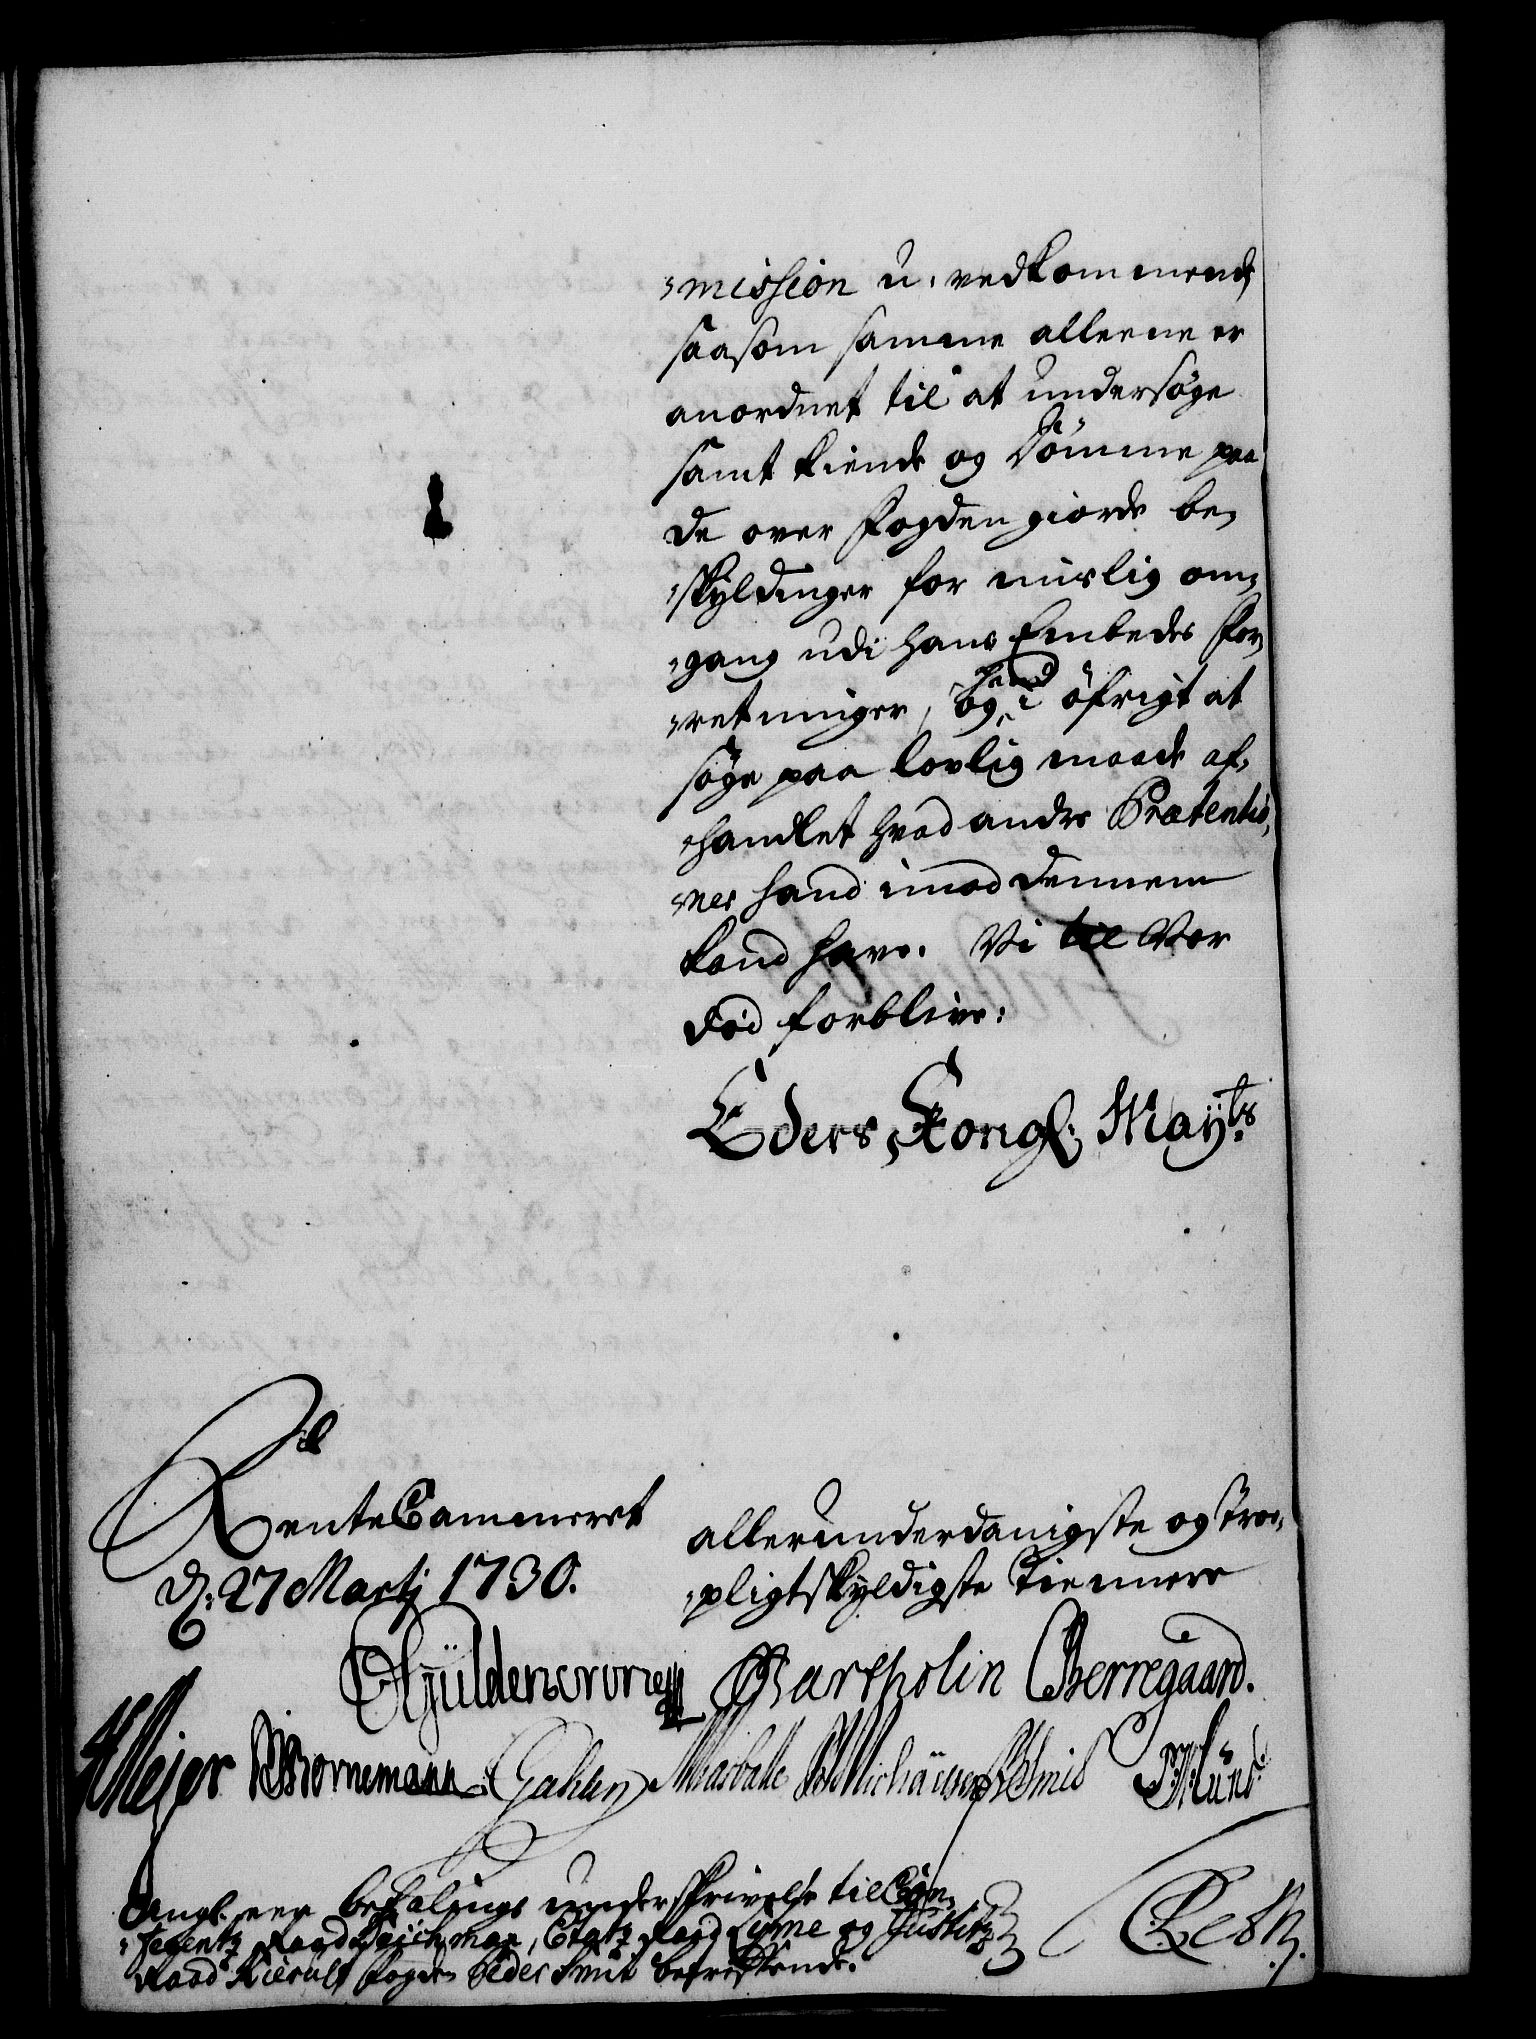 -mission u-vedkommende
saasom samme alleene er
anordnet til at undersøge
samt kiende og dømme paa
de over Fogden giorde be-
-skyldinger for mislig om-
-gang udi hans Embeds For-
-retninger, og hand i øfrigt at
søge paa lovlig maade af-
-handlet hvad andre Prætentio-
-ner hand imod dennem
kand have. Vi til Vor
død forblive:
Eders Kongl: Mayts
RenteCammeret
d: 27 Martj 1730.
allerunderdanigste og troe-
-pligtskyldigste Tiennere
Güldencrone Bartholin Berregaard.
Meyer Bornemann
Angl: een befalings underskrivelse til Con-
-ferentz Raad Deichman, Etatz Raad Lyme og Justitz
Raad Kierulf Fogden Peder Smit betreffende.